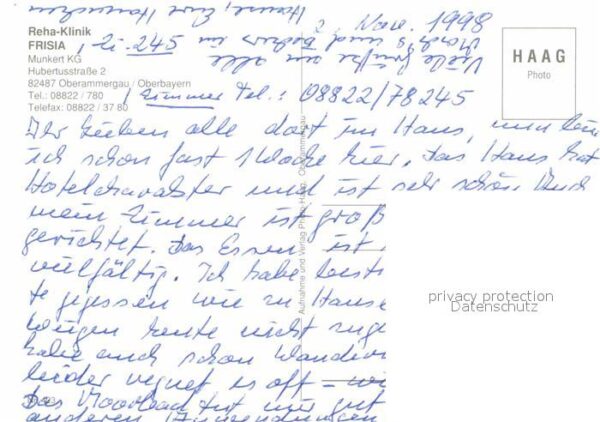 Reha-Klinik
FRISIA, Zi-245
Munkert KG
Hubertusstraße 2
82487 Oberammergau / Oberbayern
Tel.: 08822 / 780
Telefax: 08822 / 37 80
2. Nov. 1998
Viele Grüße an alle
Zimmer Tel.: 08822/78245
HAAG
Photo
Ihr Lieben alle dort im Haus, nun bin
ich schon fast 1 Woche hier. Das Haus hat
Hotelcharakter und ist sehr schön. Auch
mein Zimmer ist groß
gerichtet. Das Essen ist
vielfältig. Ich habe heute
gegessen wie zu Hause
heute nicht
habe auch schon
leider regnet es oft –
Das Moorbad tut mir gut
anderen Anwendungen
Aufnahme und Verlag Photo Haag, Oberammergau
privacy protection
Datenschutz